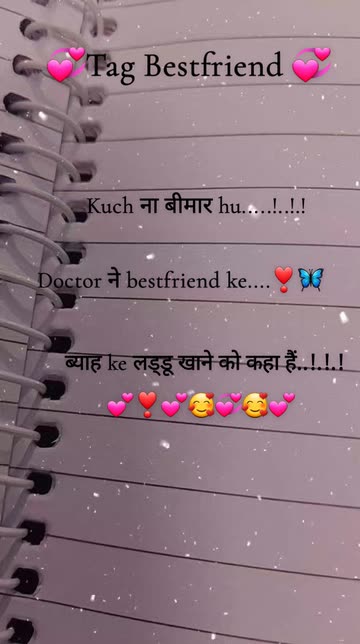 💞Tag Bestfriend 💞
Kuch ना बीमार hu.....!.!.!
Doctor ने bestfriend ke....❣️🦋
ब्याह ke लड्डू खाने को कहा हैं..!.!.!
💕❣️💕🥰💕🥰💕